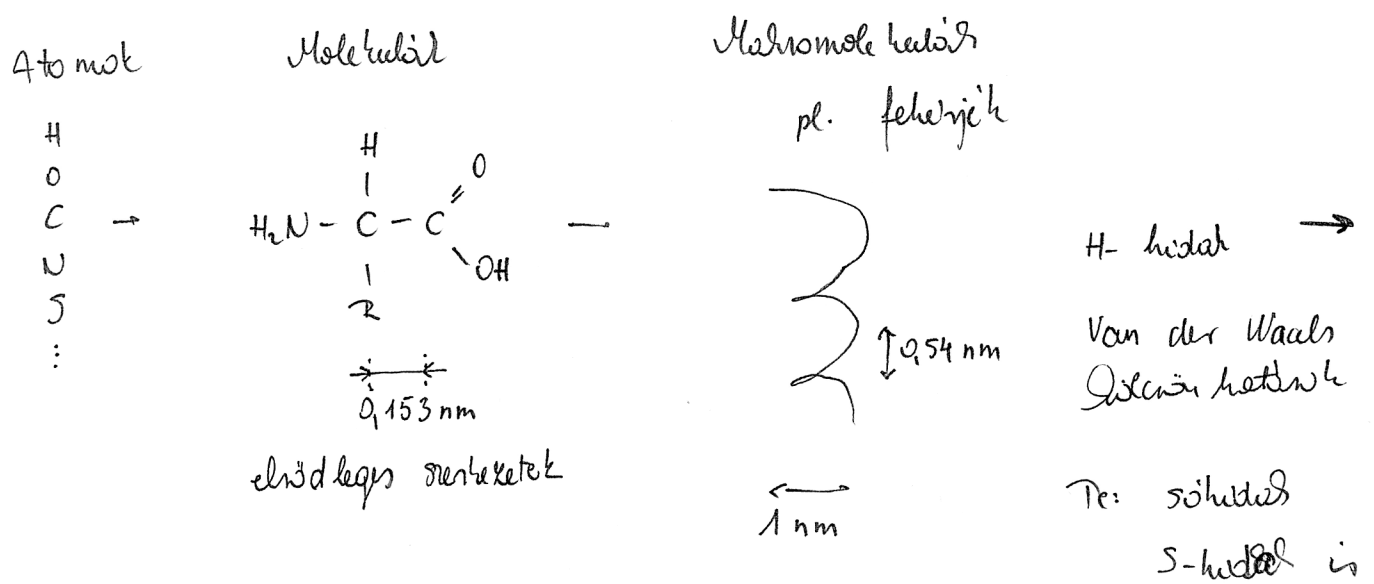 Atomok
H
O
C
N
S
⋮
→
Molekulák
H
H₂N - C - C
O
OH
R
0,153 nm
elsődleges szerkezetek
Makromolekulák
pl. fehérjék
0,54 nm
1 nm
H- hidak →
Van der Waals
kölcsönhatások
De: sóhidak
S-hidak is